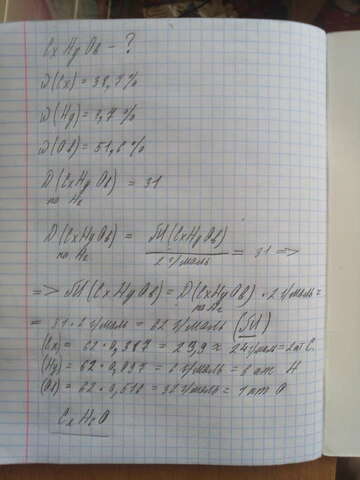 CxHyOв - ?
ω(Cx) = 38,7 %
ω(Hy) = 9,7 %
ω(Oв) = 51,6 %
D(CxHyOв) = 31
по H₂
D(CxHyOв) = M(CxHyOв) / 2 г/моль = 31 =>
по H₂
=> M(CxHyOв) = D(CxHyOв) · 2 г/моль =
по H₂
= 31 · 2 г/моль = 62 г/моль (M)
(Cx) = 62 · 0,387 = 23,9 ≈ 24 г/моль = 2 ат C.
(Hy) = 62 · 0,097 = 6 г/моль = 6 ат H
(Oв) = 62 · 0,516 = 32 г/моль = 1 ат O
C₂H₆O